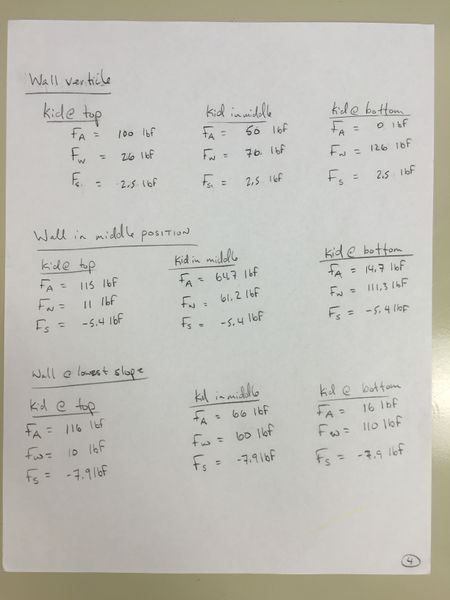 Wall verticle
Kid @ top
FA = 100 lbf
Fw = 26 lbf
Fs. = 2.5 lbf
Kid in middle
FA = 50 lbf
Fw = 76. lbf
Fs. = 2.5 lbf
Kid @ bottom
FA = 0 lbf
Fw = 126 lbf
Fs = 2.5 lbf
Wall in middle POSITION
Kid @ top
FA = 115 lbf
Fw = 11 lbf
Fs = -5.4 lbf
Kid in middle
FA = 64.7 lbf
Fw = 61.2 lbf
Fs = -5.4 lbf
Kid @ bottom
FA = 14.7 lbf
Fw = 111.3 lbf
Fs = -5.4 lbf
Wall @ lowest slope
Kid @ top
FA = 116 lbf
Fw = 10 lbf
Fs = -7.9 lbf
Kid in middle
FA = 66 lbf
Fw = 60 lbf
Fs = -7.9 lbf
Kid @ bottom
FA = 16 lbf
Fw = 110 lbf
Fs = -7.9 lbf
4